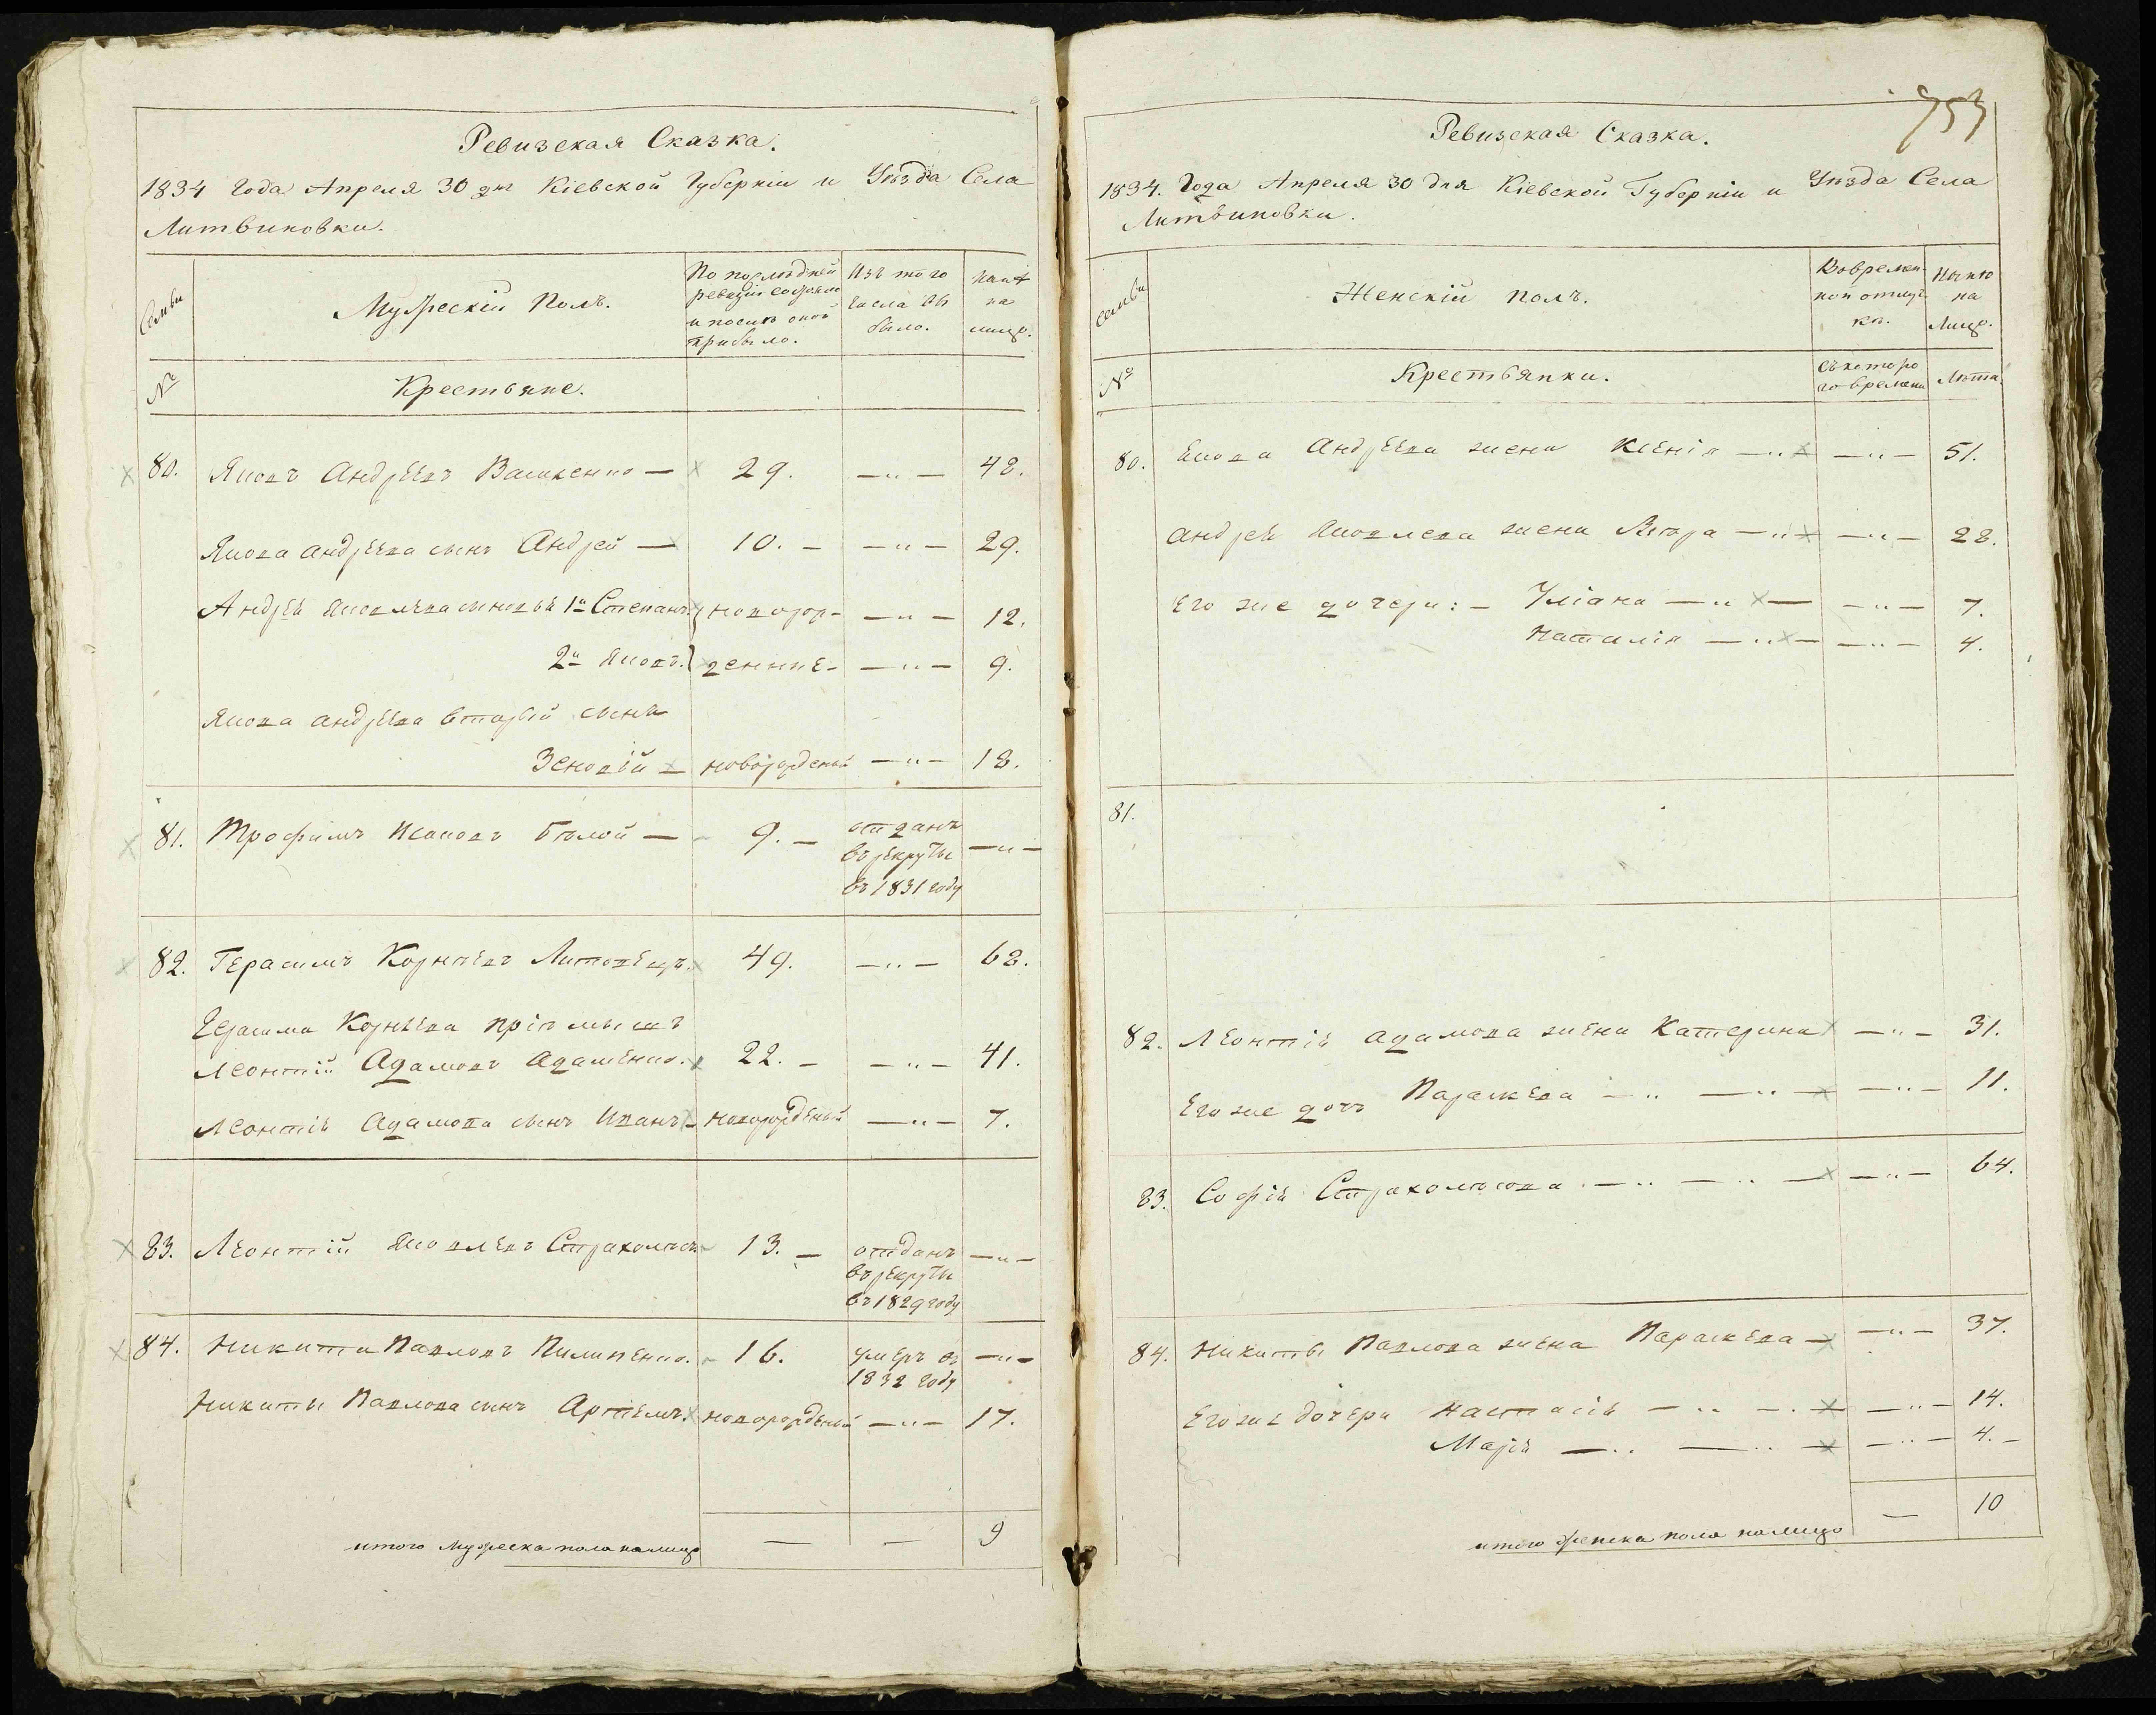 Ревизская Сказка.
1834 Года Апреля 30 дня Кіевской Губерніи и Уѣзда Села
Литвиновки.
Семьи
Мужескій Полъ.
По послѣдней ревизіи состояло и послѣ оной прибыло.
Изъ того числа выбыло.
Нынѣ на лицо.
№
Крестьяне.
80. Яковъ Андрѣевъ Васькенко — 29. —"— 48.
Якова Андрѣева сынъ Андрей — 10. — —"— 29.
Андрѣя Яковлева сыновья 1й Степанъ новорож- —"— 12.
2й Яковъ. денные —"— 9.
Якова Андрѣева вторый сынъ
Зеновій — новорожденый —"— 18.
81. Трофимъ Исаковъ Бѣлой — 9. — отданъ —"—
въ рекруты
въ 1831 году
82. Герасимъ Корнѣевъ Литовецъ. 49. —"— 68.
Герасима Корнѣева пріемышъ
Леонтій Адамовъ Адаменко. 22. — —"— 41.
Леонтія Адамова сынъ Иванъ — новорожденый —"— 7.
83. Леонтій Яковлевъ Страхолѣсъ 13. — отданъ —"—
въ рекруты
въ 1829 году
84. Никита Павловъ Пилипенко. 16. умеръ въ —"—
1832 году
Никиты Павлова сынъ Артемъ. новорожденый —"— 17.
итого мужеска пола налицо — — 9
753
Ревизская Сказка.
1834. Года Апреля 30 дня Кіевской Губерніи и Уѣзда Села
Литвиновки.
Семьи
Женскій полъ.
Во временной отлучкѣ.
Нынѣ на лицо.
№
Крестьянки.
Съ которого времени
Лѣта.
80. Якова Андрѣева жена Ксенія —"— —"— 51.
Андрея Яковлева жена Вѣтра —"— —"— 28.
Его же дочери: — Уліана —"— —"— 7.
Наталія —"— —"— 4.
81.
82. Леонтія Адамова жена Катерина —"— 31.
Его же дочь Параскева —"— —"— —"— 11.
83. Софія Страхолѣсова —"— —"— —"— 64.
84. Никиты Павлова жена Параскева — —"— 37.
Его же дочери Настасія —"— —"— 14.
Марія —"— —"— —"— 4. —
итого женска пола налицо — 10